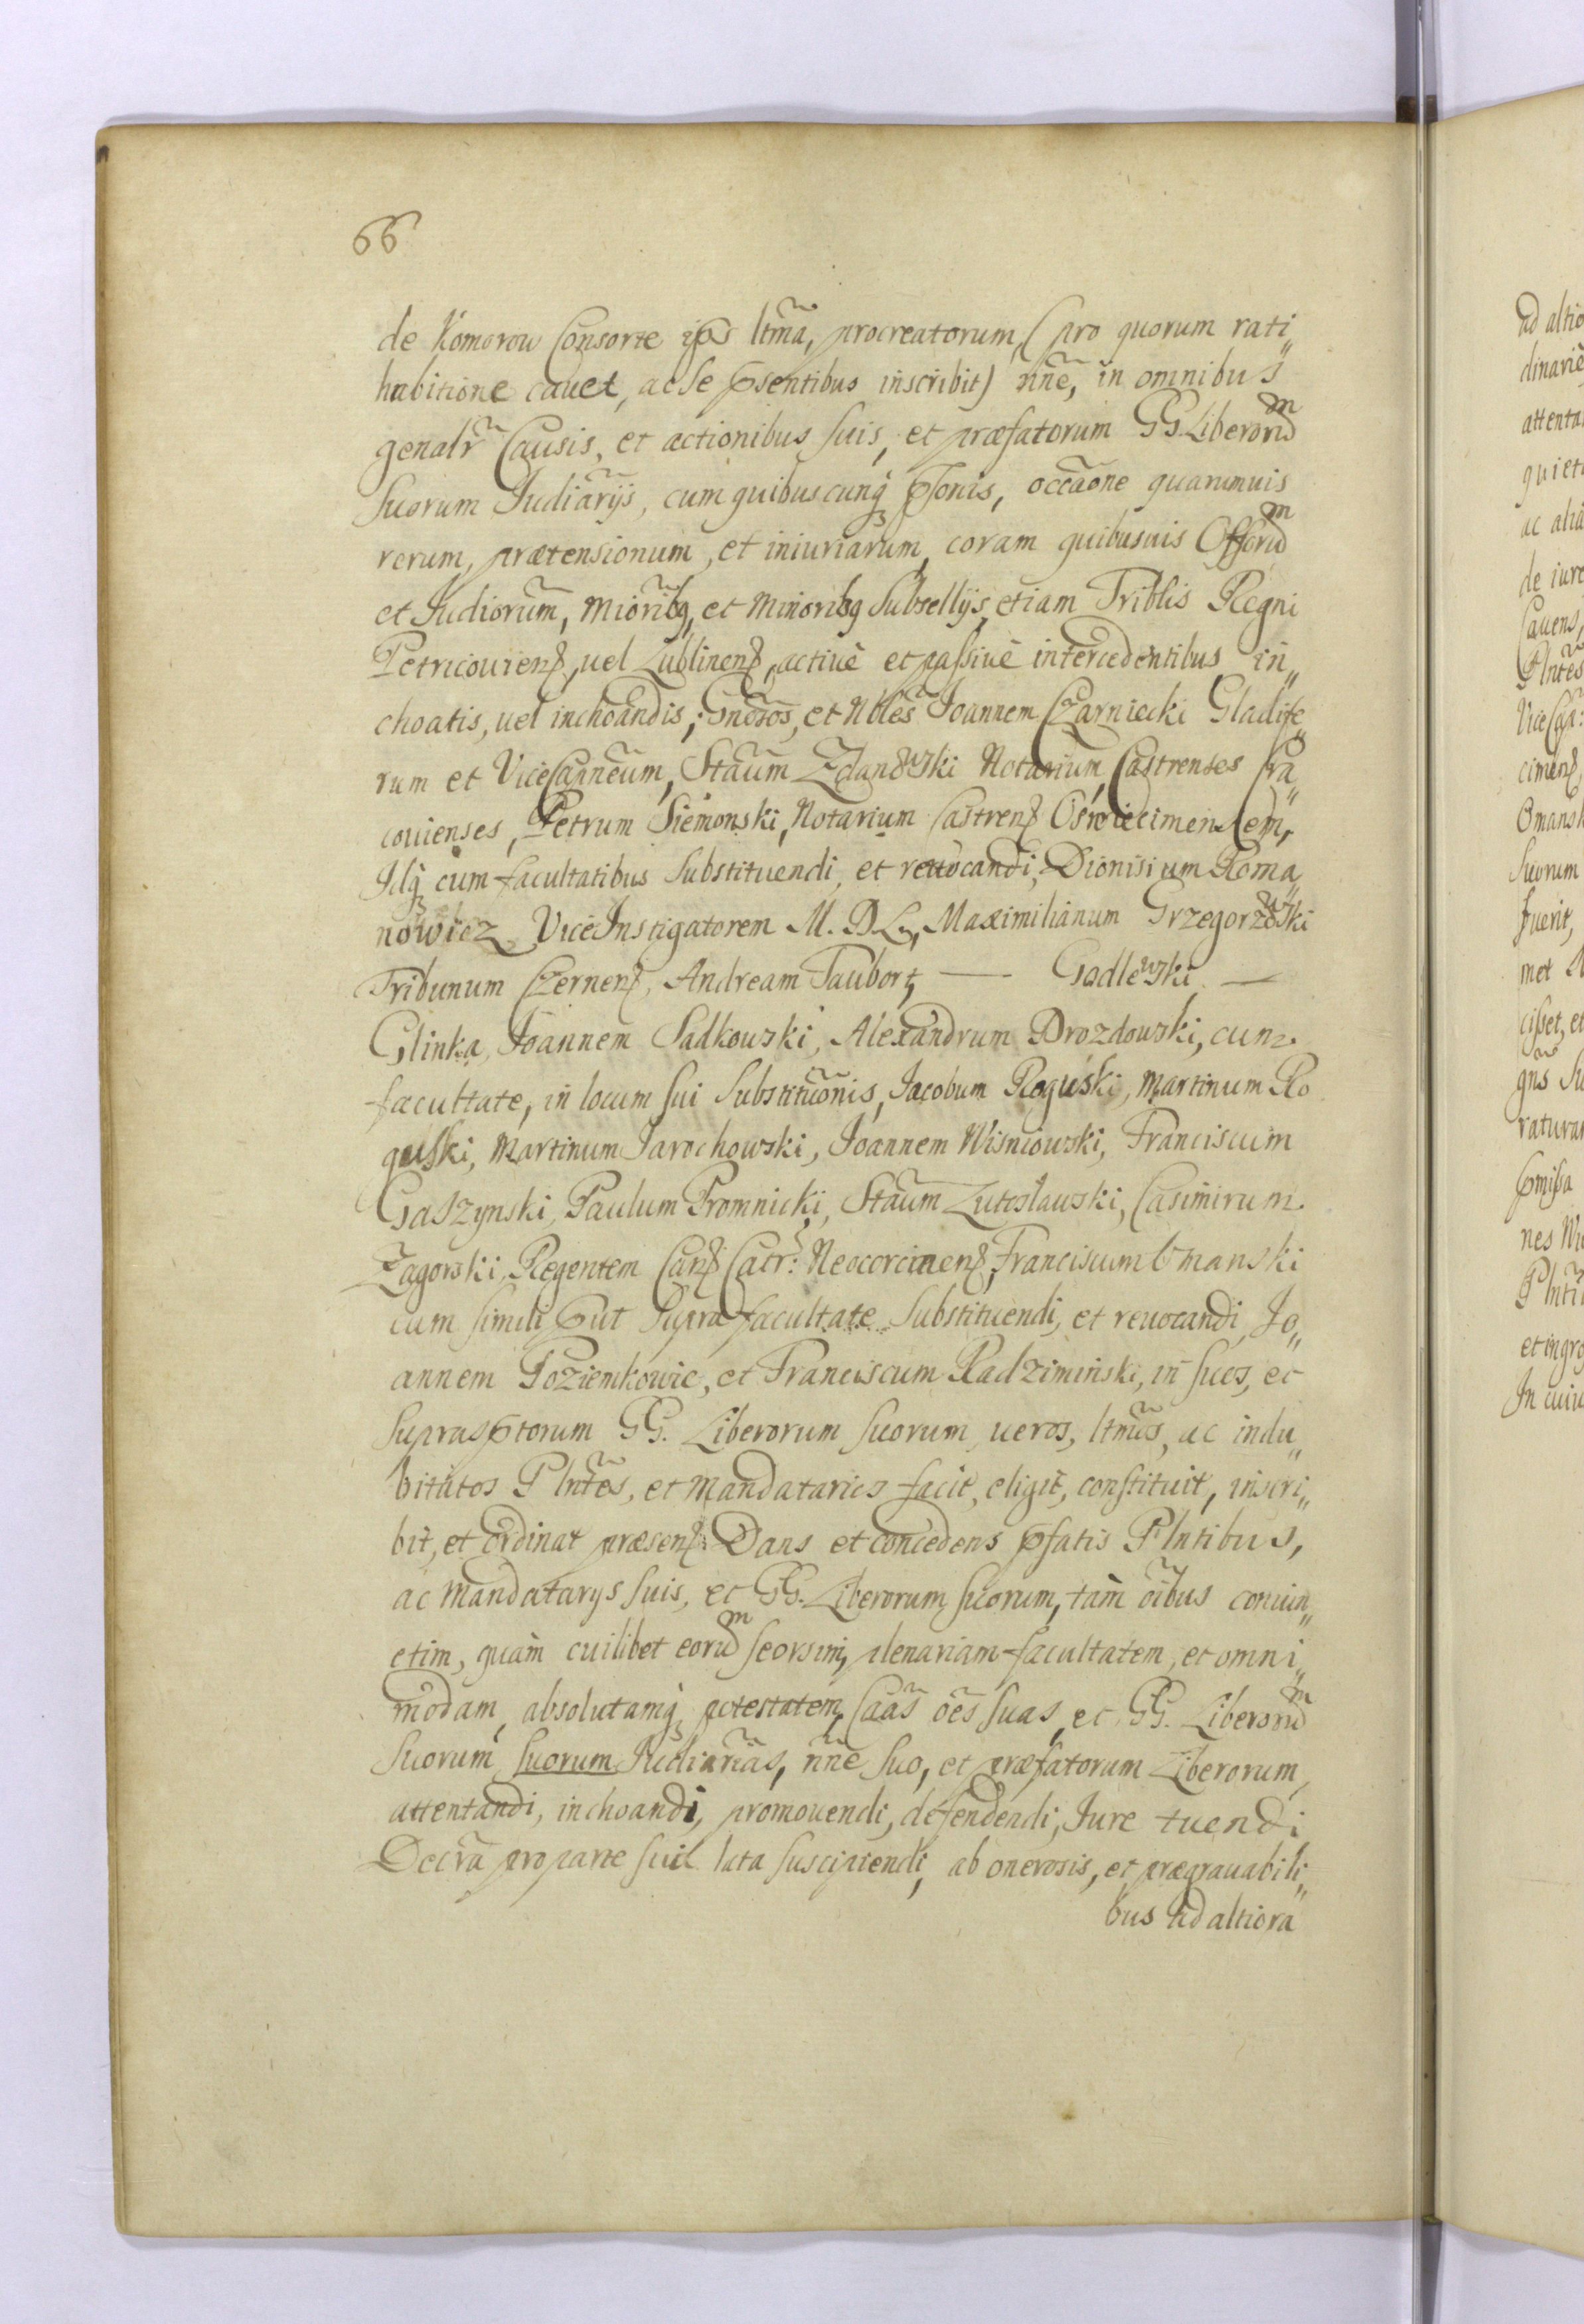 66
de Komorow Consorte ips ltma, procreatorum, (pro quorum rati„
habitione cauet, ac se psentibus inscribit) nne, in omnibus
genalr Causis, et actionibus suis, et præfatorum GG. Liberorum
suorum Iudiarijs, cum quibuscunq psonis, occaone quarumuis
rerum, prætensionum, et iniuriarum, coram quibusuis Offorum
et Iudiorum, Mioribq, et Minoribq Subsellijs, etiam Triblis Regni
Petricouiens, uel Lublinens, actiue et passiue intercedentibus, in„
choatis, uel inchoandis; Gnosos, et Nbles Ioannem Czarniecki Gladife„
rum et ViceCanneum, Staum Zdanowski Notarium Castrenses Cra„
couienses, Petrum Siemonski, Notarium Castrens Oswiecimensem,
Idq cum facultatibus substituendi, et reuocandi, Dionisium Roma„
nowicz ViceInstigatorem M. D L, Maximilianum Grzegorzewski
Tribunum Czernens, Andream Taubort, — Gadlewski, —
Glinka, Ioannem Sadkowski, Alexandrum Drozdowski, cum
facultate, in locum sui substituonis, Iacobum Roguski, Martinum Ro
guski, Martinum Iarochowski, Ioannem Wisniowski, Franciscum
Gaszynski, Paulum Promnicki, Staum Lutosławski, Casimirum
Zagorski, Regentem Cans Catr: Neocorcinens, Franciscum Omanski
cum simili put supra facultate substituendi, et reuocandi, Io„
annem Poziemkowic, et Franciscum Radziminski, in suos, et
suprasptorum GG. Liberorum suorum, ueros, ltmos, ac indu„
bitatos Plntes, et Mandatarios facit, eligit, constituit, inscri„
bit, et ordinat præsens. Dans et concedens pfatis Plntibus,
ac Mandatarys suis, et GG. Liberorum suorum, tam oibus coniun„
ctim, quam cuilibet eorum seorsim, plenariam facultatem, et omni„
modam, absolutamq potestatem, Caas oes suas, et GG. Liberorum
suorum suorum Iudiarias, nne suo, et præfatorum Liberorum,
attentandi, inchoandi, promouendi, defendendi, Iure tuendi
Decra pro parte sui lata suscipiendi, ab onerosis, et prægrauabili„
bus ad altiora